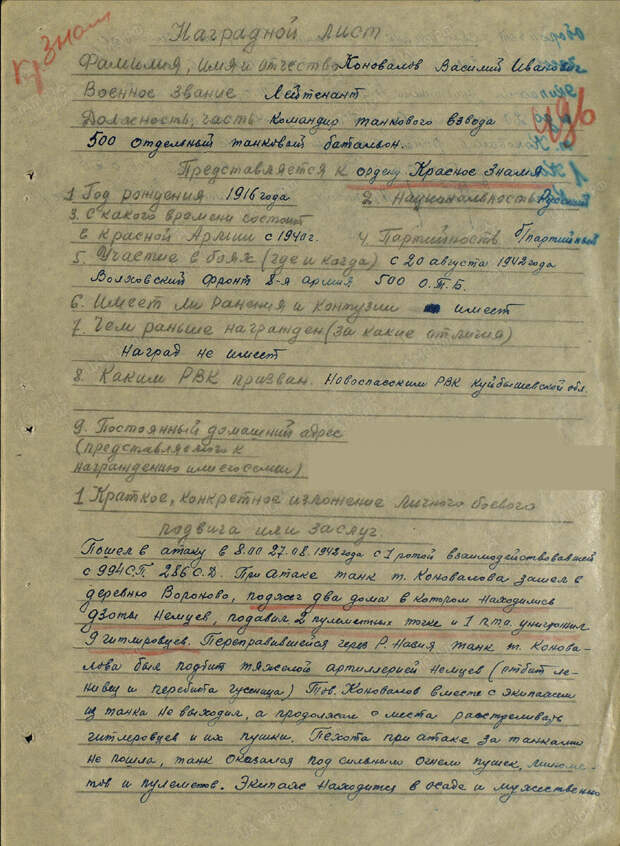 Кр. Знам
Наградной лист
Фамилия, имя и отчество Коновалов Василий Иванович
Военное звание - Лейтенант
Должность, часть командир танкового взвода
500 отдельный танковый батальон.
Представляется к ордену Красное Знамя
1 Год рождения 1916 года 2. Национальность Русский
3. С какого времени состоит
в Красной Армии с 1940 г. 4. Партийность б/партийный
5. Участие в боях (где и когда) с 20 августа 1942 года
Волховский фронт 8-я армия 500 О.Т.Б.
6. Имеет ли ранения и контузии имеет
7. Чем раньше награжден (за какие отличия)
Наград не имеет
8. Каким РВК призван. Новоспасским РВК Куйбышевской обл.
9. Постоянный домашний адрес
(представляемого к
награждению или его семьи)
1 Краткое, конкретное изложение личного боевого
подвига или заслуг.
Пошел в атаку в 8.00 27.08.1942 года с 1 ротой взаимодействовавшей
с 994 С.П. 286 С.Д. При атаке танк т. Коновалова зашел в
деревню Вороново, поджег два дома в котором находились
дзоты немцев, подавил 2 пулеметных точке и 1 п.т.о. уничтожил
9 гитлеровцев. Переправившейся через р. Назия танк т. Коно-
лова был подбит тяжелой артиллерией немцев (отбит ле-
нивец и перебита гусеница) Тов. Коновалов вместе с экипажем
из танка не выходил, а продолжал с места расстреливать
гитлеровцев и их пушки. Пехота при атаке за танками
не пошла, танк оказался под сильным огнем пушек, миноме-
тов и пулеметов. Экипаж находится в осаде и мужественно